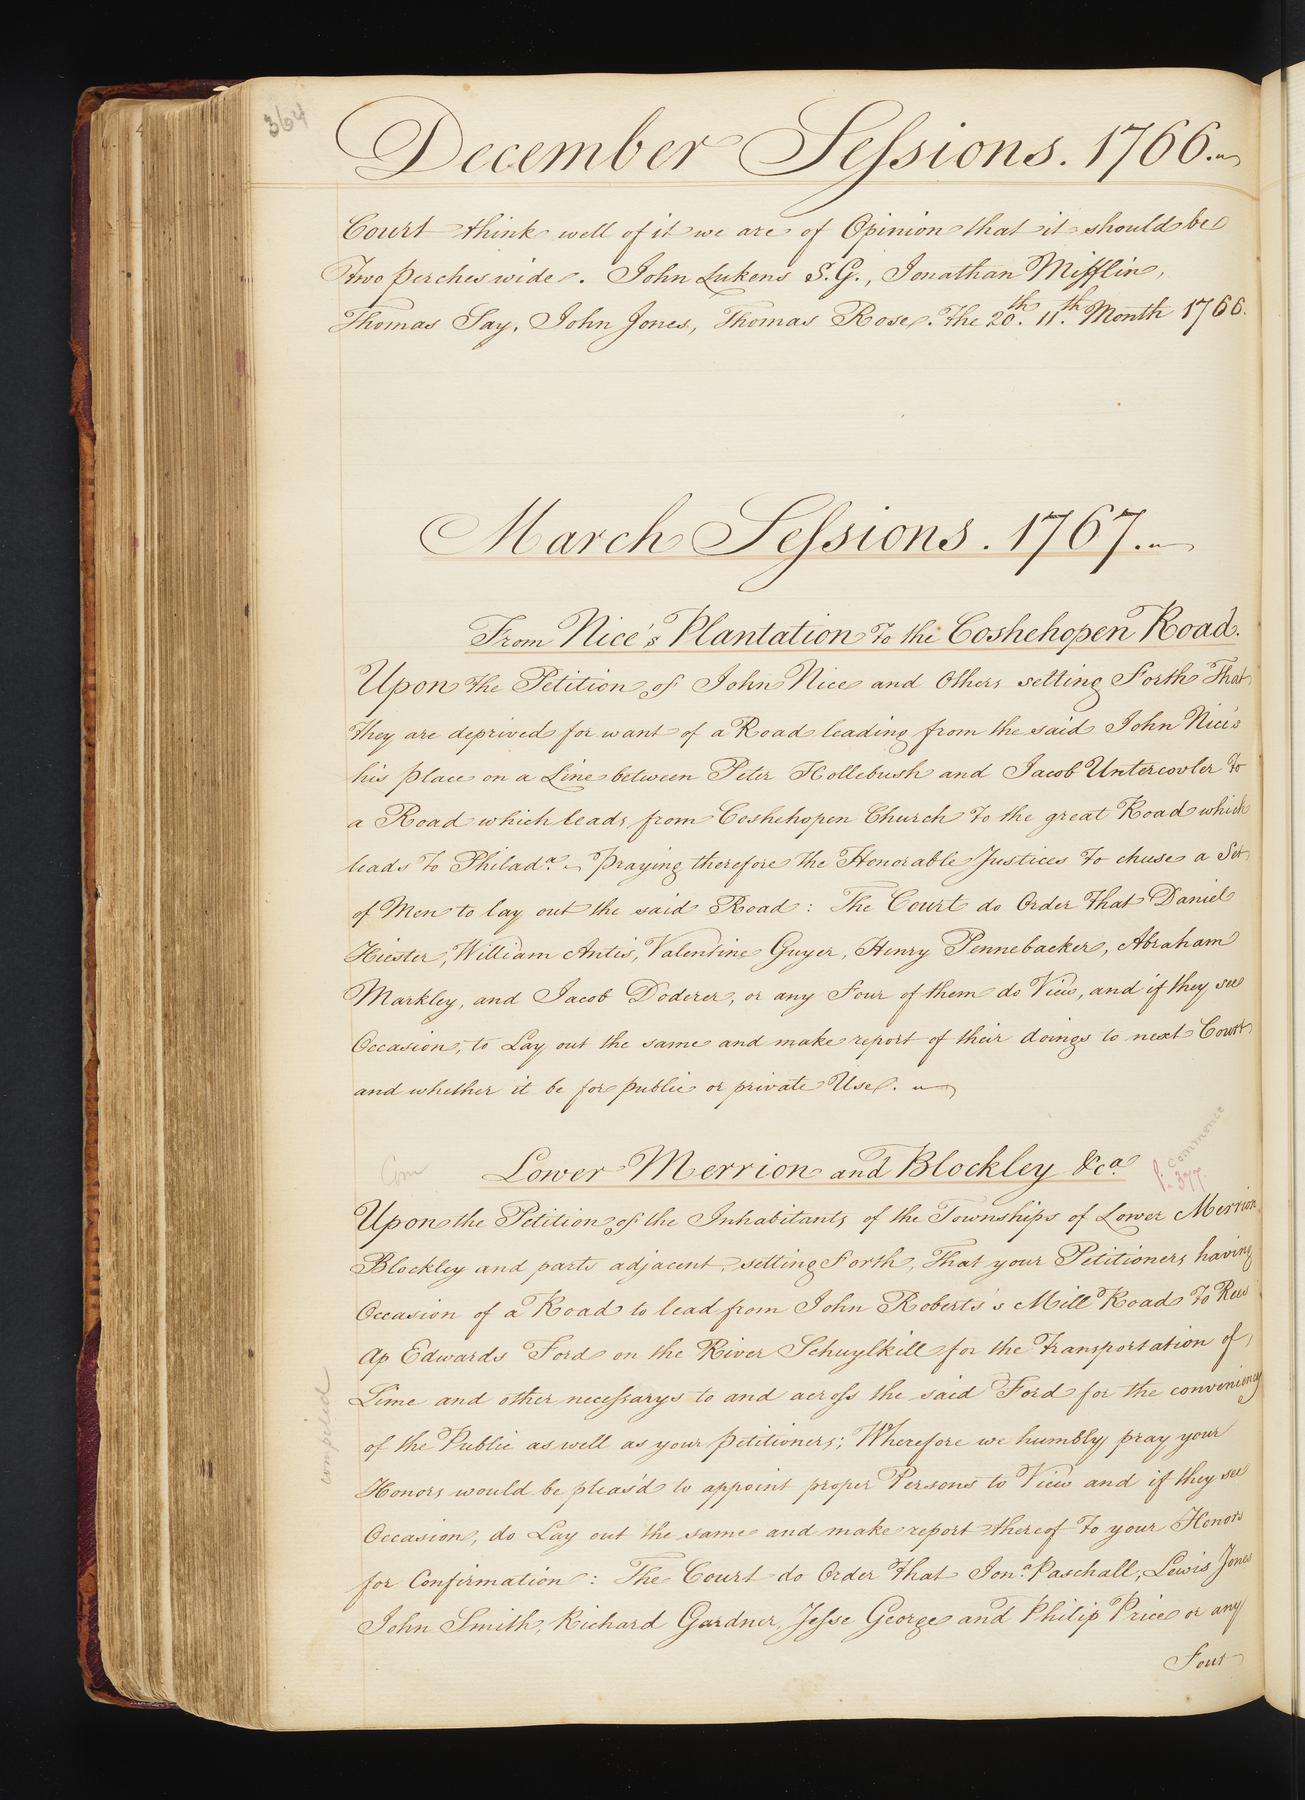 364
December Sessions. 1766.
Court think well of it we are of Opinion that it should be
Two perches wide. John Lukens S.G., Jonathan Mifflin,
Thomas Say, John Jones, Thomas Rose. The 20th. 11th. Month 1766.
March Sessions. 1767.
From Nice's Plantation To the Coshehopen Road.
Upon the Petition of John Nice and Others setting Forth That
they are deprived for want of a Road leading from the said John Nice's
his place on a Line between Peter Hollebush and Jacob Untercovler To
a Road which leads from Coshehopen Church To the great Road which
leads To Philada. Praying therefore the Honorable Justices To chuse a Set
of Men to lay out the said Road: The Court do Order That Daniel
Hiester, William Antis, Valentine Guyer, Henry Pennebacker, Abraham
Markley, and Jacob Doderer, or any Four of them do View, and if they see
Occasion, to Lay out the same and make report of their doings to next Court
and whether it be for public or private Use.
Com
Lower Merrion and Blockley &ca
commence
p. 377
Upon the Petition of the Inhabitants of the Townships of Lower Merrion
Blockley and parts adjacent, setting Forth, That your Petitioners having
Occasion of a Road to lead from John Roberts's Mill Road To Rees
Ap Edwards Ford on the River Schuylkill for the Transportation of
Lime and other necessarys to and across the said Ford for the conveniency
of the Public as well as your petitioners; Wherefore we humbly pray your
Honors would be pleas'd to appoint proper Persons to View and if they see
Occasion, do Lay out the same and make report thereof To your Honors
for Confirmation: The Court do Order That Jona. Paschall, Lewis Jones
John Smith, Richard Gardner, Jesse George and Philip Price or any
Four